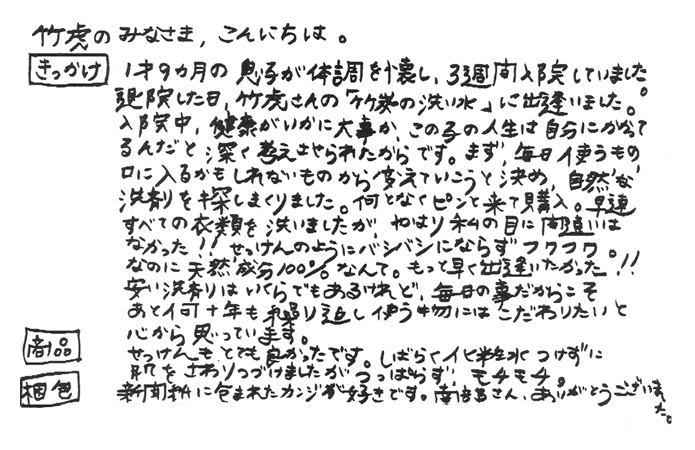 竹虎のみなさま，こんにちは。
きっかけ 1才9ヵ月の息子が体調を懐し、3週間入院していました。
退院した日，竹虎さんの「竹炭の洗い水」に出逢いました。
入院中，健康がいかに大事か、この子の人生は自分にかかって
るんだと深く考えさせられたからです。まず，毎日使うもの
口に入るかもしれないものから変えていこうと決め，自然な
洗剤を探しまくりました。何となくピンと来て購入。早速
すべての衣類を洗いましたが、やはり私の目に間違いは
なかった!! せっけんのようにバシバシにならずフワフワ。
なのに天然成分100%なんて。もっと早く出逢いたかった!!
安い洗剤はいくらでもあるけれど、毎日の事だからこそ
あと何十年も繰り返し使う物にはこだわりたいと
心から思っています。
商品 せっけんもとても良かったです。しばらく化粧水つけずに
肌をさわりつづけましたがつっぱらず，モチモチ。
梱包 新聞紙に包まれたカンジが好きです。さん、ありがとうございました。